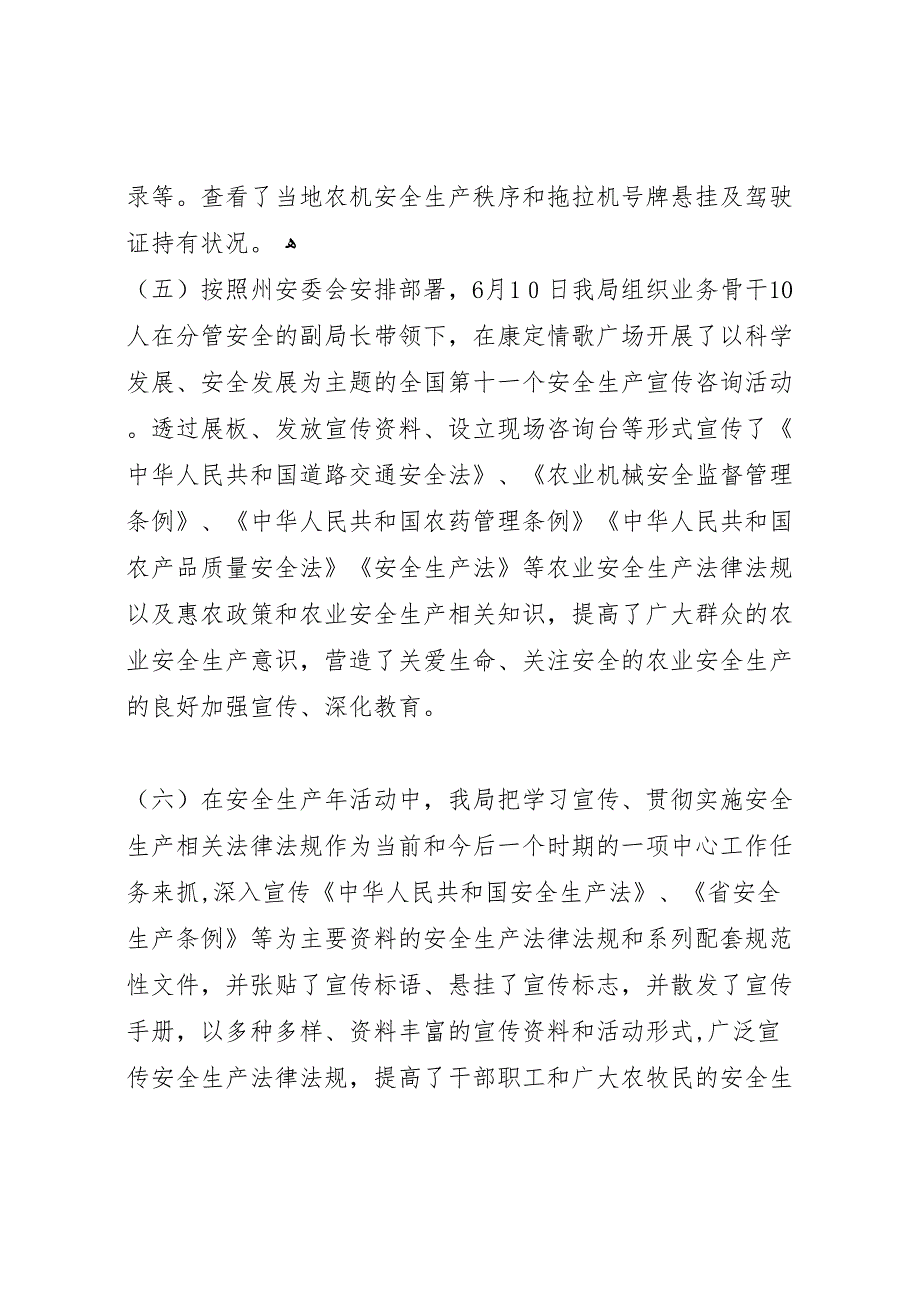 录等。查看了当地农机安全生产秩序和拖拉机号牌悬挂及驾驶
证持有状况。 ﻫ
（五）按照州安委会安排部署，6月1０日我局组织业务骨干10
人在分管安全的副局长带领下，在康定情歌广场开展了以科学
发展、安全发展为主题的全国第十一个安全生产宣传咨询活动
。透过展板、发放宣传资料、设立现场咨询台等形式宣传了《
中华人民共和国道路交通安全法》、《农业机械安全监督管理
条例》、《中华人民共和国农药管理条例》《中华人民共和国
农产品质量安全法》《安全生产法》等农业安全生产法律法规
以及惠农政策和农业安全生产相关知识，提高了广大群众的农
业安全生产意识，营造了关爱生命、关注安全的农业安全生产
的良好加强宣传、深化教育。
（六）在安全生产年活动中，我局把学习宣传、贯彻实施安全
生产相关法律法规作为当前和今后一个时期的一项中心工作任
务来抓,深入宣传《中华人民共和国安全生产法》、《省安全
生产条例》等为主要资料的安全生产法律法规和系列配套规范
性文件，并张贴了宣传标语、悬挂了宣传标志，并散发了宣传
手册，以多种多样、资料丰富的宣传资料和活动形式,广泛宣
传安全生产法律法规，提高了干部职工和广大农牧民的安全生